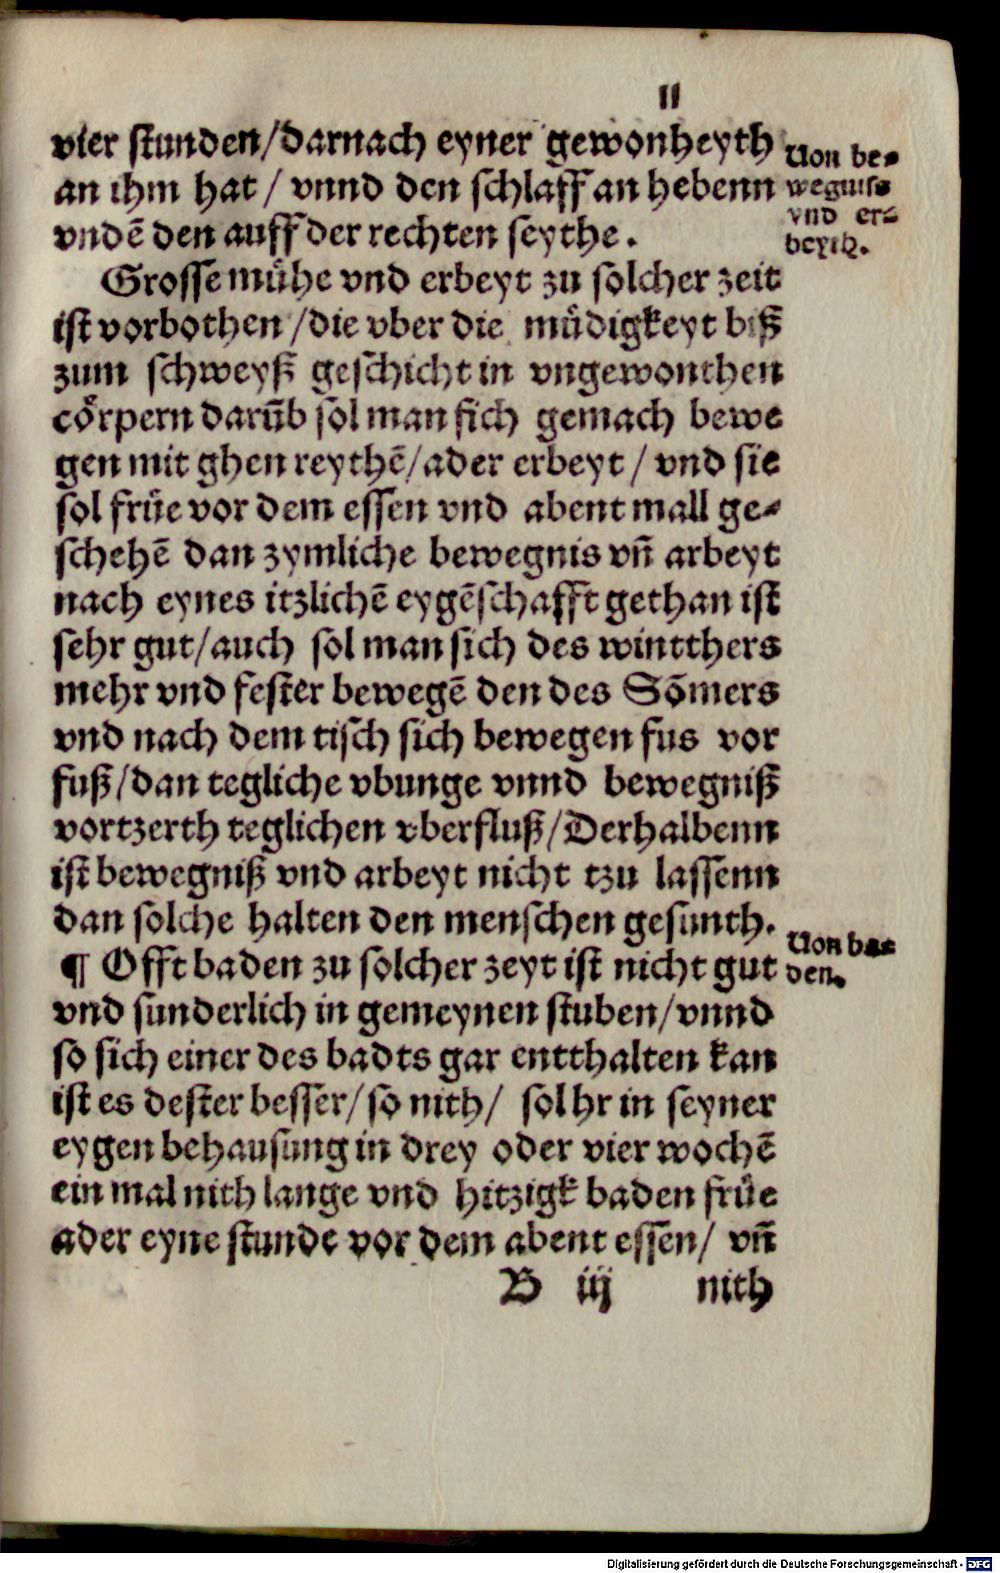 11
vier stunden/darnach eyner gewonheyth
an ihm hat / vnnd den schlaff an hebenn
vndē den auff der rechten seythe.
Von be⸗
wegnis⸗
vnd er⸗
beyth.
Grosse mühe vnd erbeyt zu solcher zeit
ist vorbothen /die vber die müdigkeyt biß
zum schweyß geschicht in vngewonthen
cörpern darūb sol man sich gemach bewe
gen mit ghen reythē/ader erbeyt / vnd sie
sol früe vor dem essen vnd abent mall ge⸗
schehē dan zymliche bewegnis vn̄ arbeyt
nach eynes itzlichē eygēschafft gethan ist
sehr gut/auch sol man sich des wintthers
mehr vnd fester bewegē den des Sōmers
vnd nach dem tisch sich bewegen fus vor
fuß/dan tegliche vbunge vnnd bewegniß
vortzerth teglichen vberfluß/Derhalbenn
ist bewegniß vnd arbeyt nicht tzu lassenn
dan solche halten den menschen gesunth.
Von ba⸗
den.
¶ Offt baden zu solcher zeyt ist nicht gut
vnd sunderlich in gemeynen stuben/vnnd
so sich einer des badts gar entthalten kan
ist es dester besser/so nith/ sol hr in seyner
eygen behausung in drey oder vier wochē
ein mal nith lange vnd hitzigk baden früe
ader eyne stunde vor dem abent essen/ vn̄
B iij nith
Digitalisierung gefördert durch die Deutsche Forschungsgemeinschaft - DFG